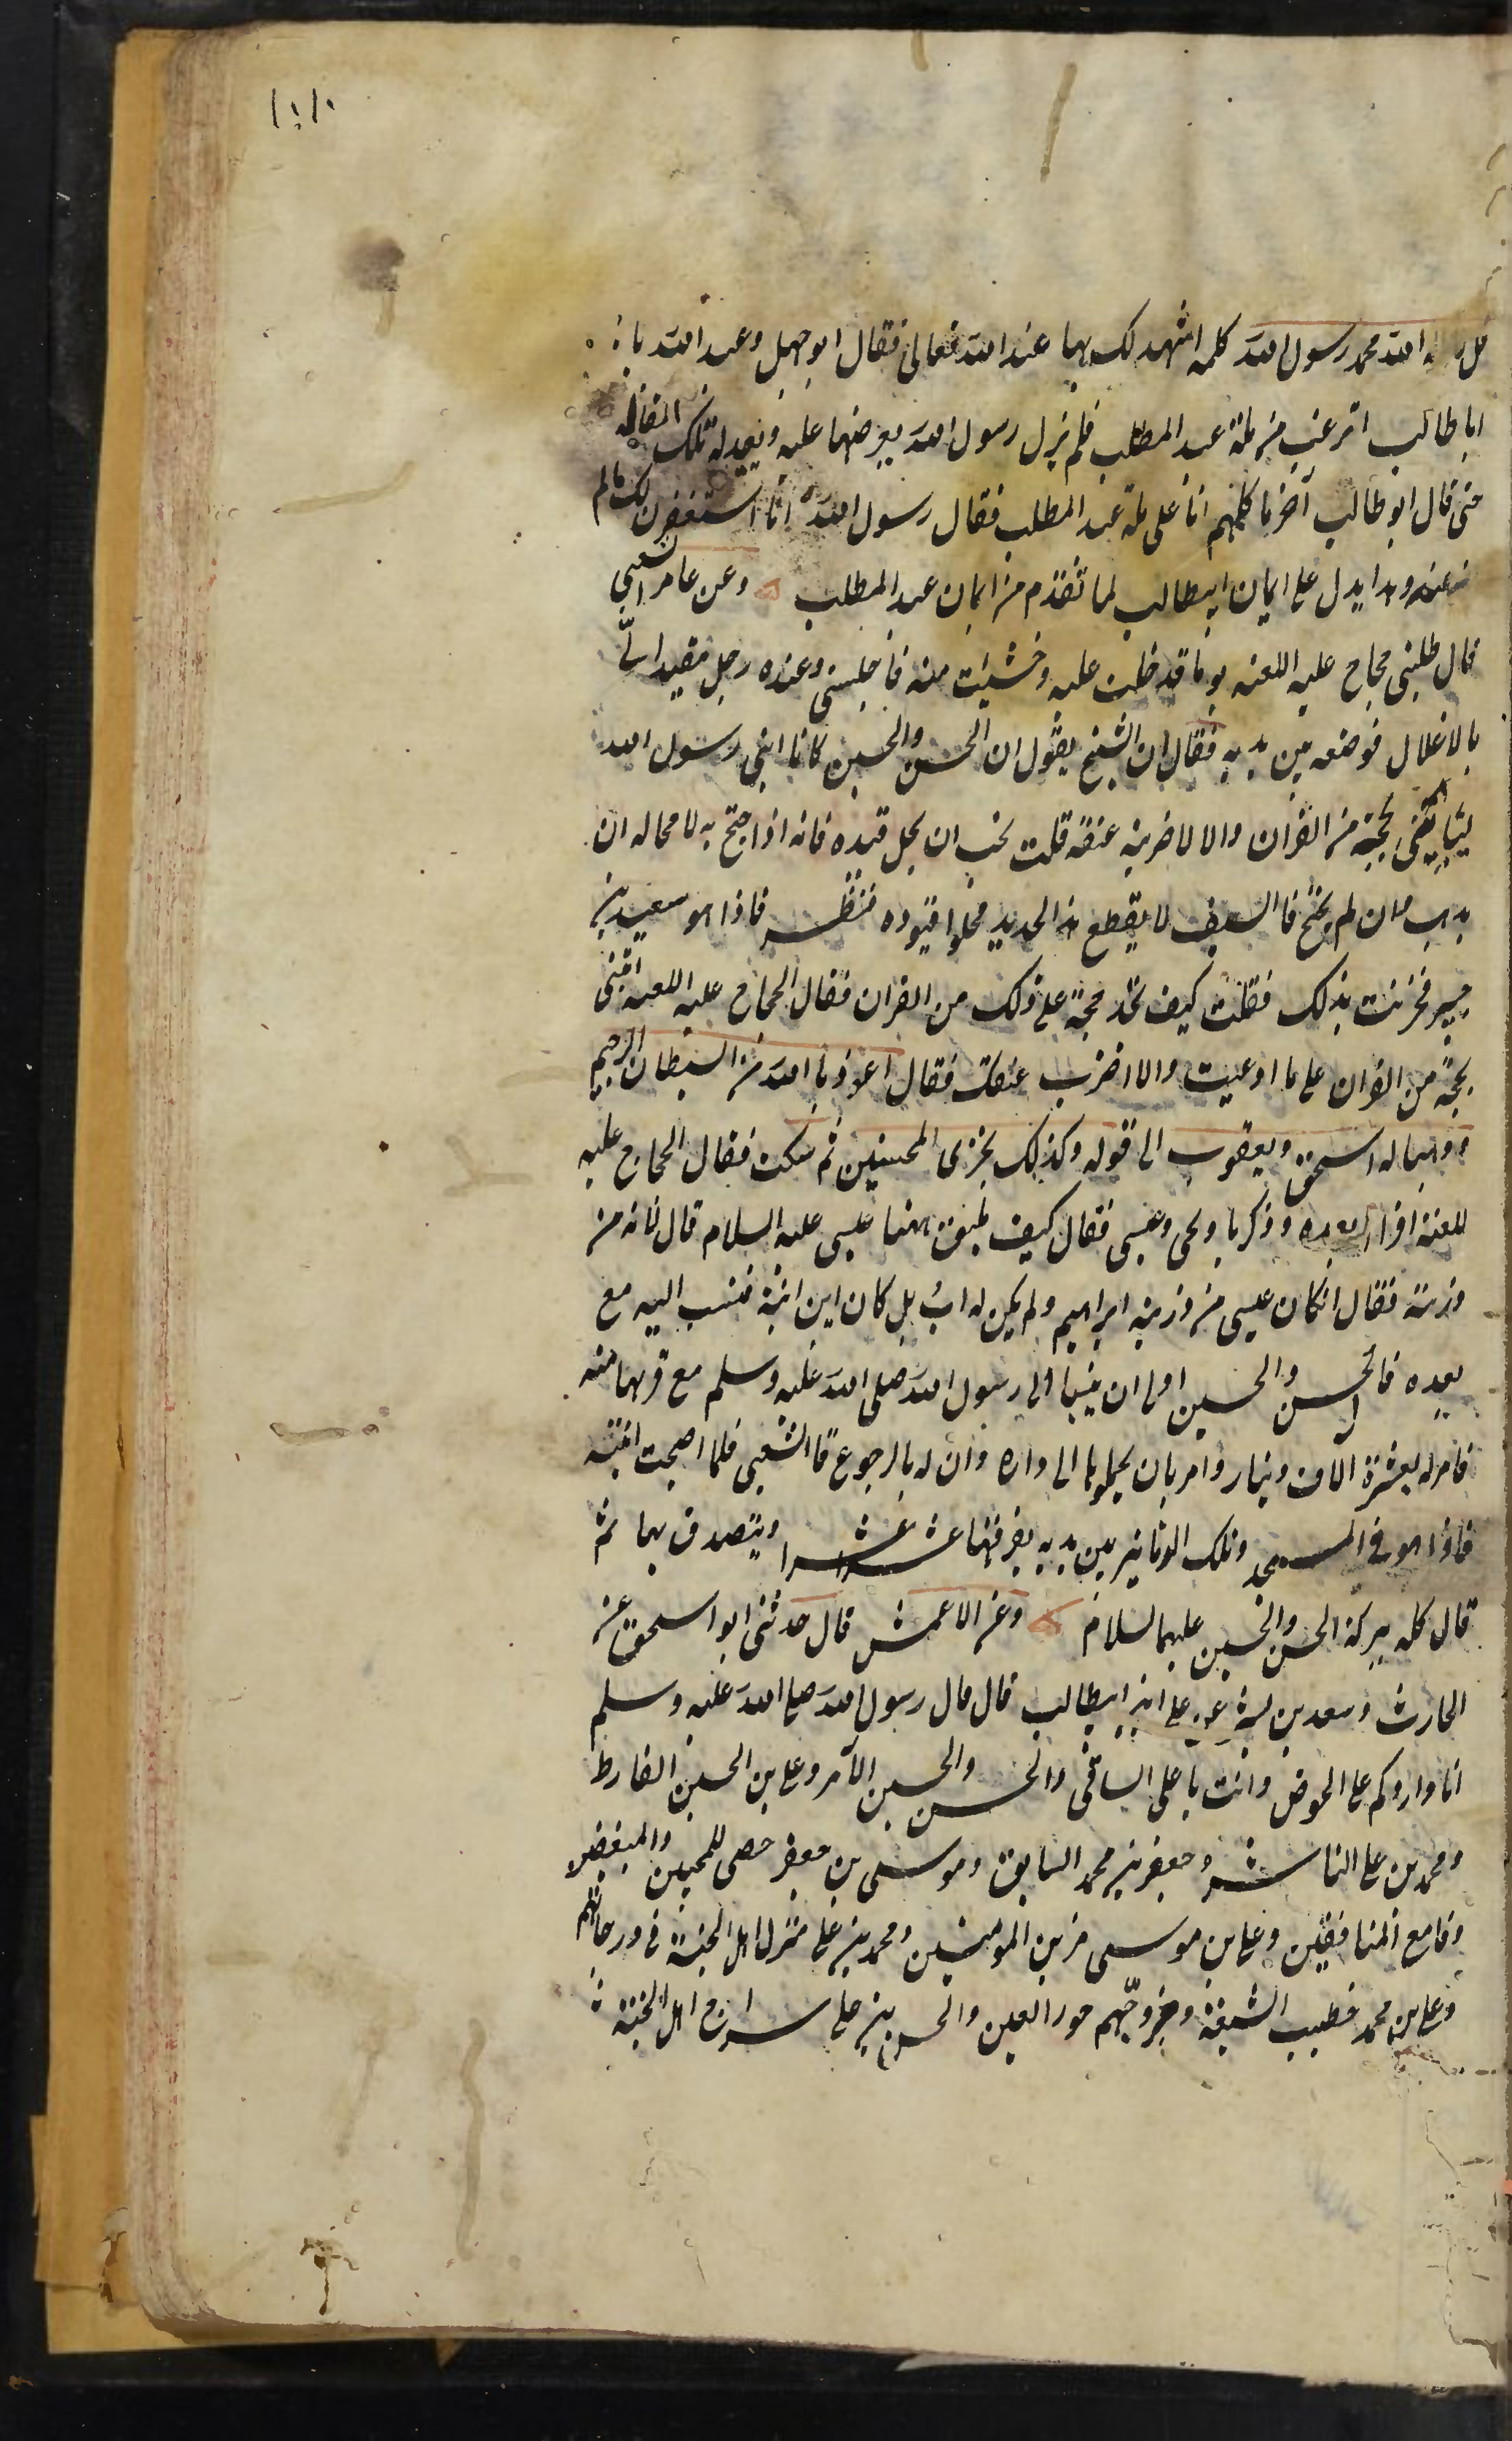 ١٨١
الله محمد رسول الله كلمه اشهد لك بها عند الله تعالى فقال ابو جهل وعبد الله يا
ابا طالب اترغب من ملة عبد المطلب فلم يزل رسول الله يعرضها عليه ويعيد له تلك المقاله
حتى قال ابو طالب آخر ما كلمهم انا على ملة عبد المطلب فقال رسول الله انا استغفرن لك مالم
عنه وهذا يدل على ايمان ابيطالب لما تقدم من ايمان عبد المطلب وعن عامر الشعبي
قال طلبني حجاج عليه اللعنه يوما فدخلت عليه وخشيت منه فاجلسني وعنده رجل مقيد
بالاغلال فوضعه بين يديه فقال ان الشيخ يقول ان الحسن والحسين كانا ابني رسول الله
ليأتيني بحجة من القرآن والا لاضربن عنقه قلت نحب ان يحل قيده فانه اذا احتج به لا محاله ان
يذهب وان لم يحتج فالسيف لا يقطع هذا الحديد فحلوا قيوده فنظر فاذا هو سعيد بن
جبير فحزنت بذلك فقلت كيف تجد حجة على ذلك من القران فقال الحجاج عليه اللعنه ائتني
بحجة من القران على ما ادعيت والا اضرب عنقك فقال اعوذ بالله من الشيطان الرجيم
ووهبنا له اسحق ويعقوب الى قوله وكذلك نجزى المحسنين ثم سكت فقال الحجاج عليه
اللعنه اقرأ بعده وزكريا ويحى وعيسى فقال كيف يليق ههنا عيسى عليه السلام قال انه من
ذريته فقال ان كان عيسى من ذرية ابراهيم ولم يكن له اب بل كان ابن ابنته فنسب اليه مع
بعده فالحسن والحسين اولى ان ينسبا الى رسول الله صلى الله عليه وسلم مع قربهما منه
فامر له بعشرة الاف دينار وامر بان يحملوها الى داره واذن له بالرجوع قال الشعبى فلما اصبحت اتيته
فاذا هو في المسجد وتلك الدنانير بين يديه يفرقها عشرا عشرا ويتصدق بها ثم
قال كله ببركة الحسن والحسين عليهما السلام وعن الاعمش قال حدثنى ابو اسحق عن
الحارث وسعد بن بشر عن على ابن ابيطالب قال قال رسول الله صلى الله عليه وسلم
انا واردكم على الحوض وانت يا على الساقى والحسن والحسين الآمر وعلى بن الحسين الفارط
ومحمد بن على الناشر وجعفر بن محمد السابق وموسى بن جعفر محصى للمحبين والمبغضين
وقامع المنافقين وعلى بن موسى مزين المومنين ومحمد بن على منزل اهل الجنة في درجاتهم
وعلى بن محمد خطيب الشيعة ومزوجهم حور العين والحسن بن على سراج اهل الجنة